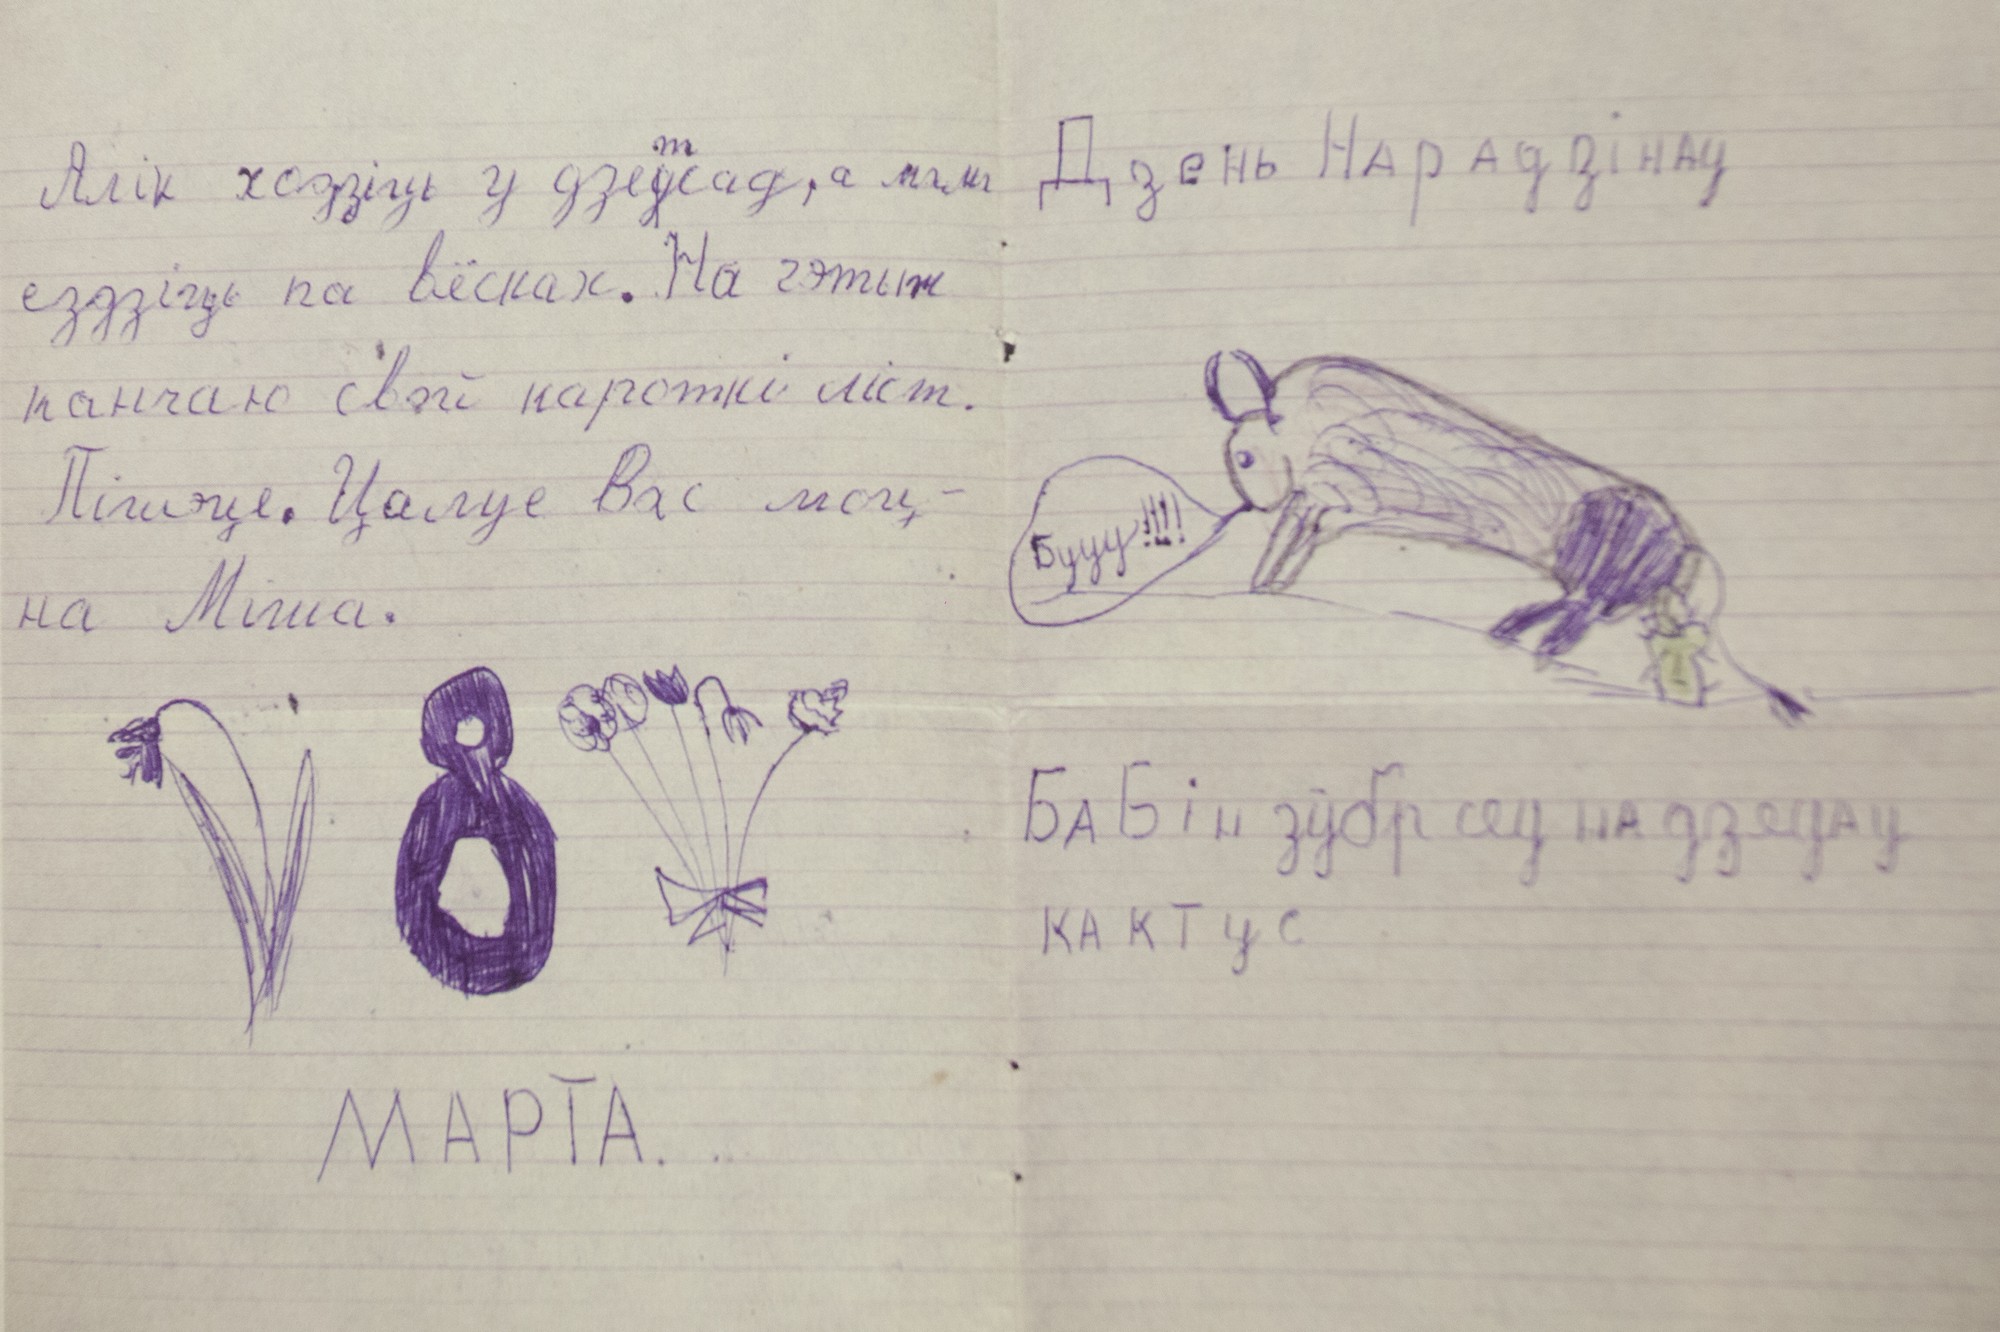 Алік ходзіць у дзетсад, а мама
ездзіць па вёсках. На гэтым
канчаю свой кароткі ліст.
Пішэце. Цалуе Вас моц-
на Міша.
8
МАРТА...
Дзень Нарадзінау
Бууу!!!!
БаБін зубр сеу на дзедау
кактус